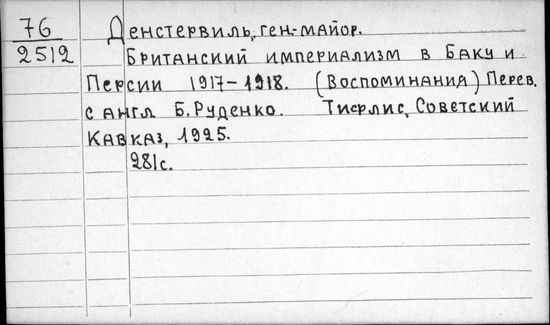 76 Денстервиль, ген-майор.
2512 Британский империализм в Баку и
Персии 1917-1918. (Воспоминания) Перев.
с англ Б. Руденко. Тифлис, Советский
Кавказ, 1925.
281с.